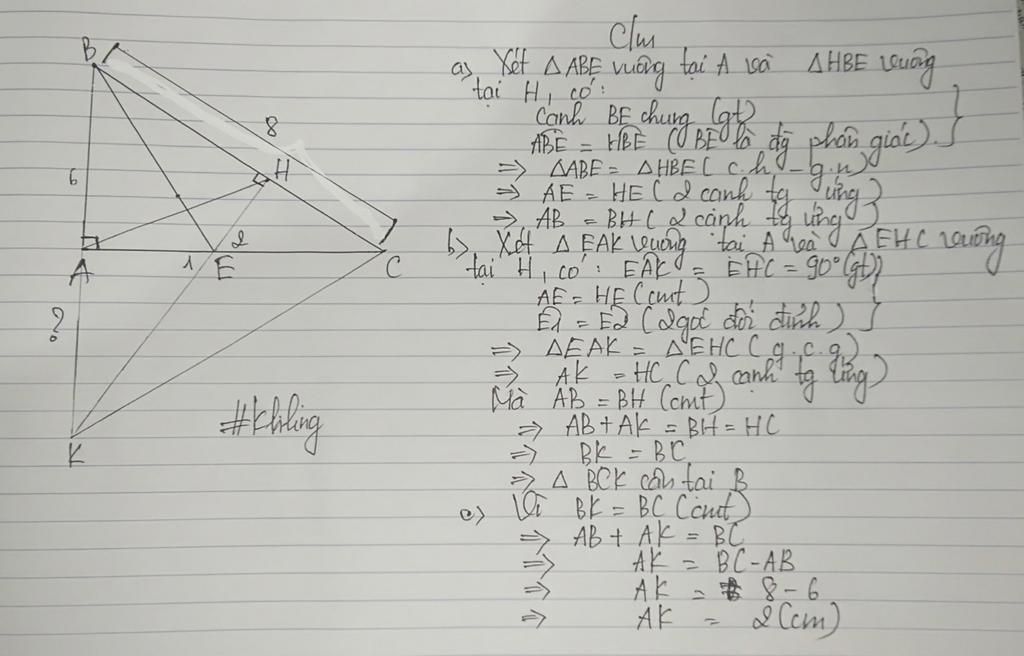 B
8
6
H
2
A
1
E
C
?
K
#Khling
C/m
a) Xét △ABE vuông tại A và △HBE vuông
tại H, có:
Cạnh BE chung (gt)
ABE = HBE (BE là đg phân giác)
=> △ABE = △HBE (c.h - g.n)
=> AE = HE (2 cạnh tg ứng)
=> AB = BH (2 cạnh tg ứng)
b) Xét △EAK vuông tại A và △EHC vuông
tại H, có: EAK = EHC = 90° (gt)
AE = HE (cmt)
E1 = E2 (2 góc đối đỉnh)
=> △EAK = △EHC (g.c.g)
=> AK = HC (2 cạnh tg ứng)
Mà AB = BH (cmt)
=> AB + AK = BH = HC
=> BK = BC
=> △ BCK cân tại B
c) Vì BK = BC (cmt)
=> AB + AK = BC
=> AK = BC - AB
=> AK = 8 - 6
=> AK = 2 (cm)